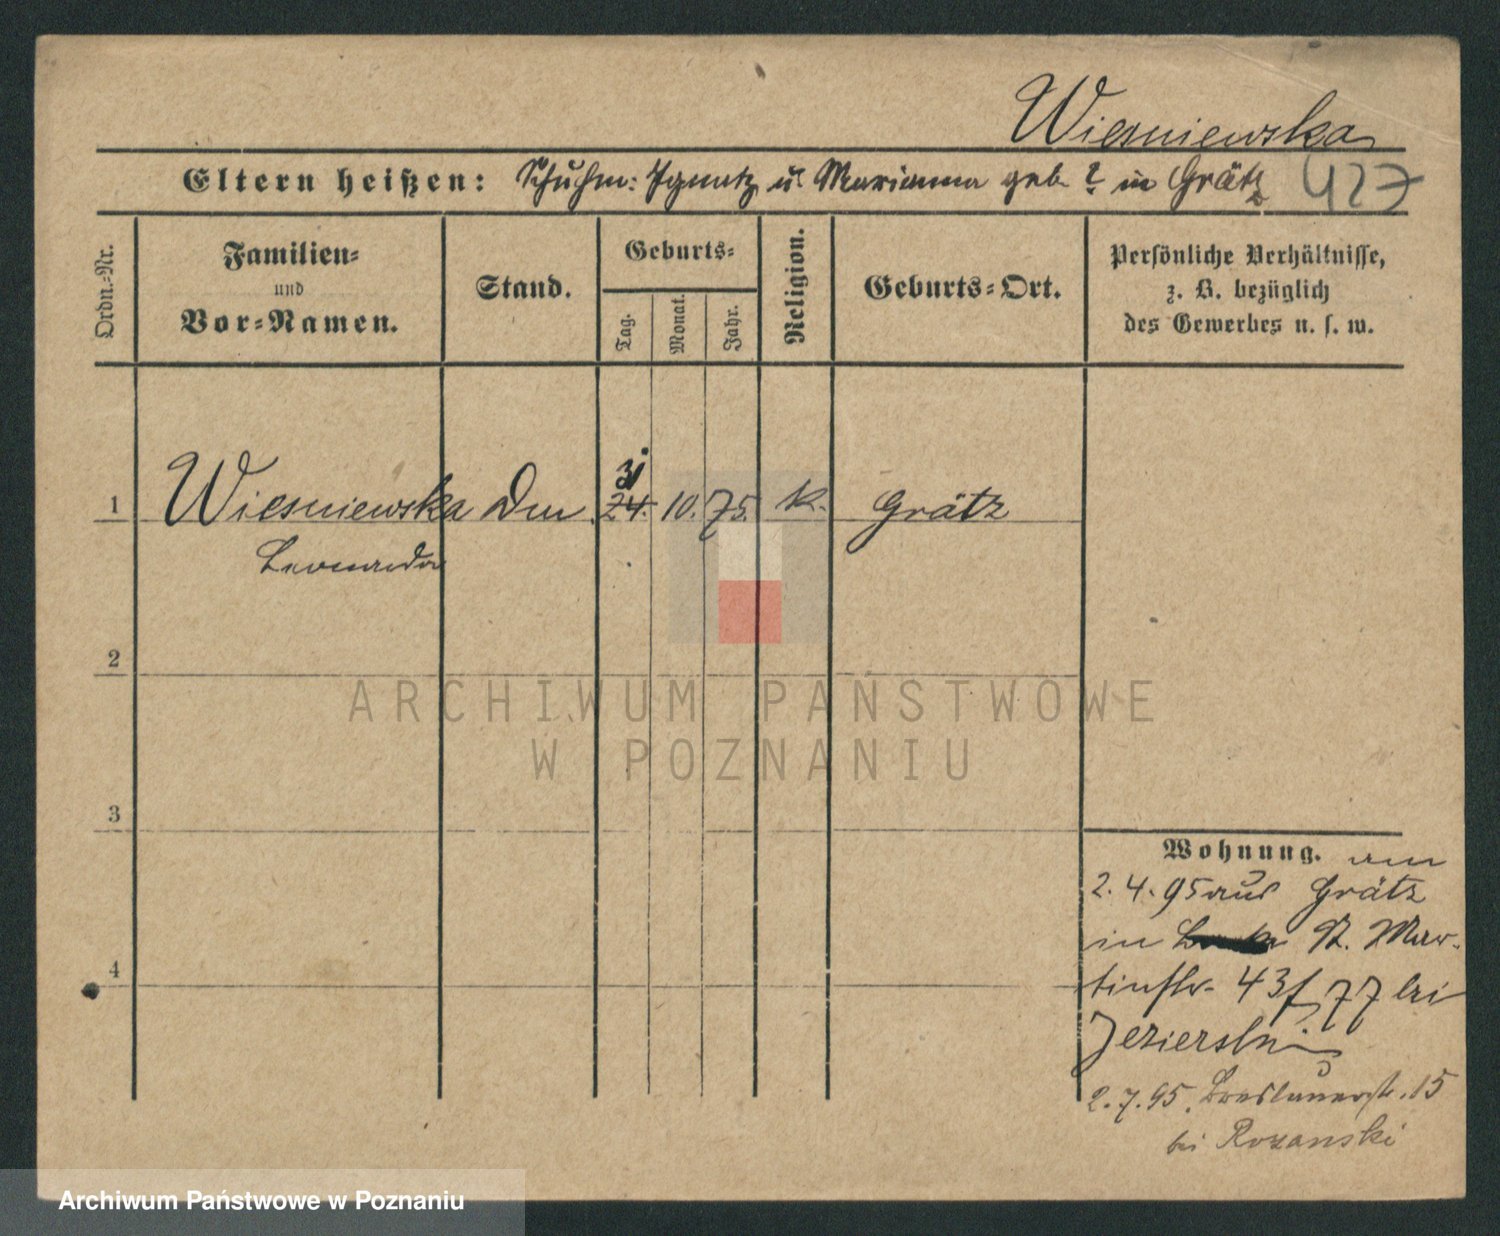 Wiesniewska
Eltern heißen: Schuhm: Ignatz u. Marianna geb. ? in Grätz 427
Ordn.-Nr.
Familien-
und
Vor-Namen.
Stand.
Geburts-
Tag.
Monat.
Jahr.
Religion.
Geburts-Ort.
Persönliche Verhältnisse,
z. B. bezüglich
des Gewerbes u. s. w.
31
1 Wiesniewska 24. 10. 75. k. Grätz
Leonarda
2
ARCHIWUM PAŃSTWOWE
W POZNANIU
3
Wohnung. am
2. 4. 95 aus Grätz
in St. Mar-
tinstr. 43 77 bei
Jezierski
4
2. 7. 95. Breslauerstr. 15
bei Rozanski
Archiwum Państwowe w Poznaniu